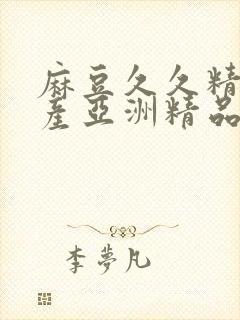 麻豆久久精
産亞洲精品
李夢凡